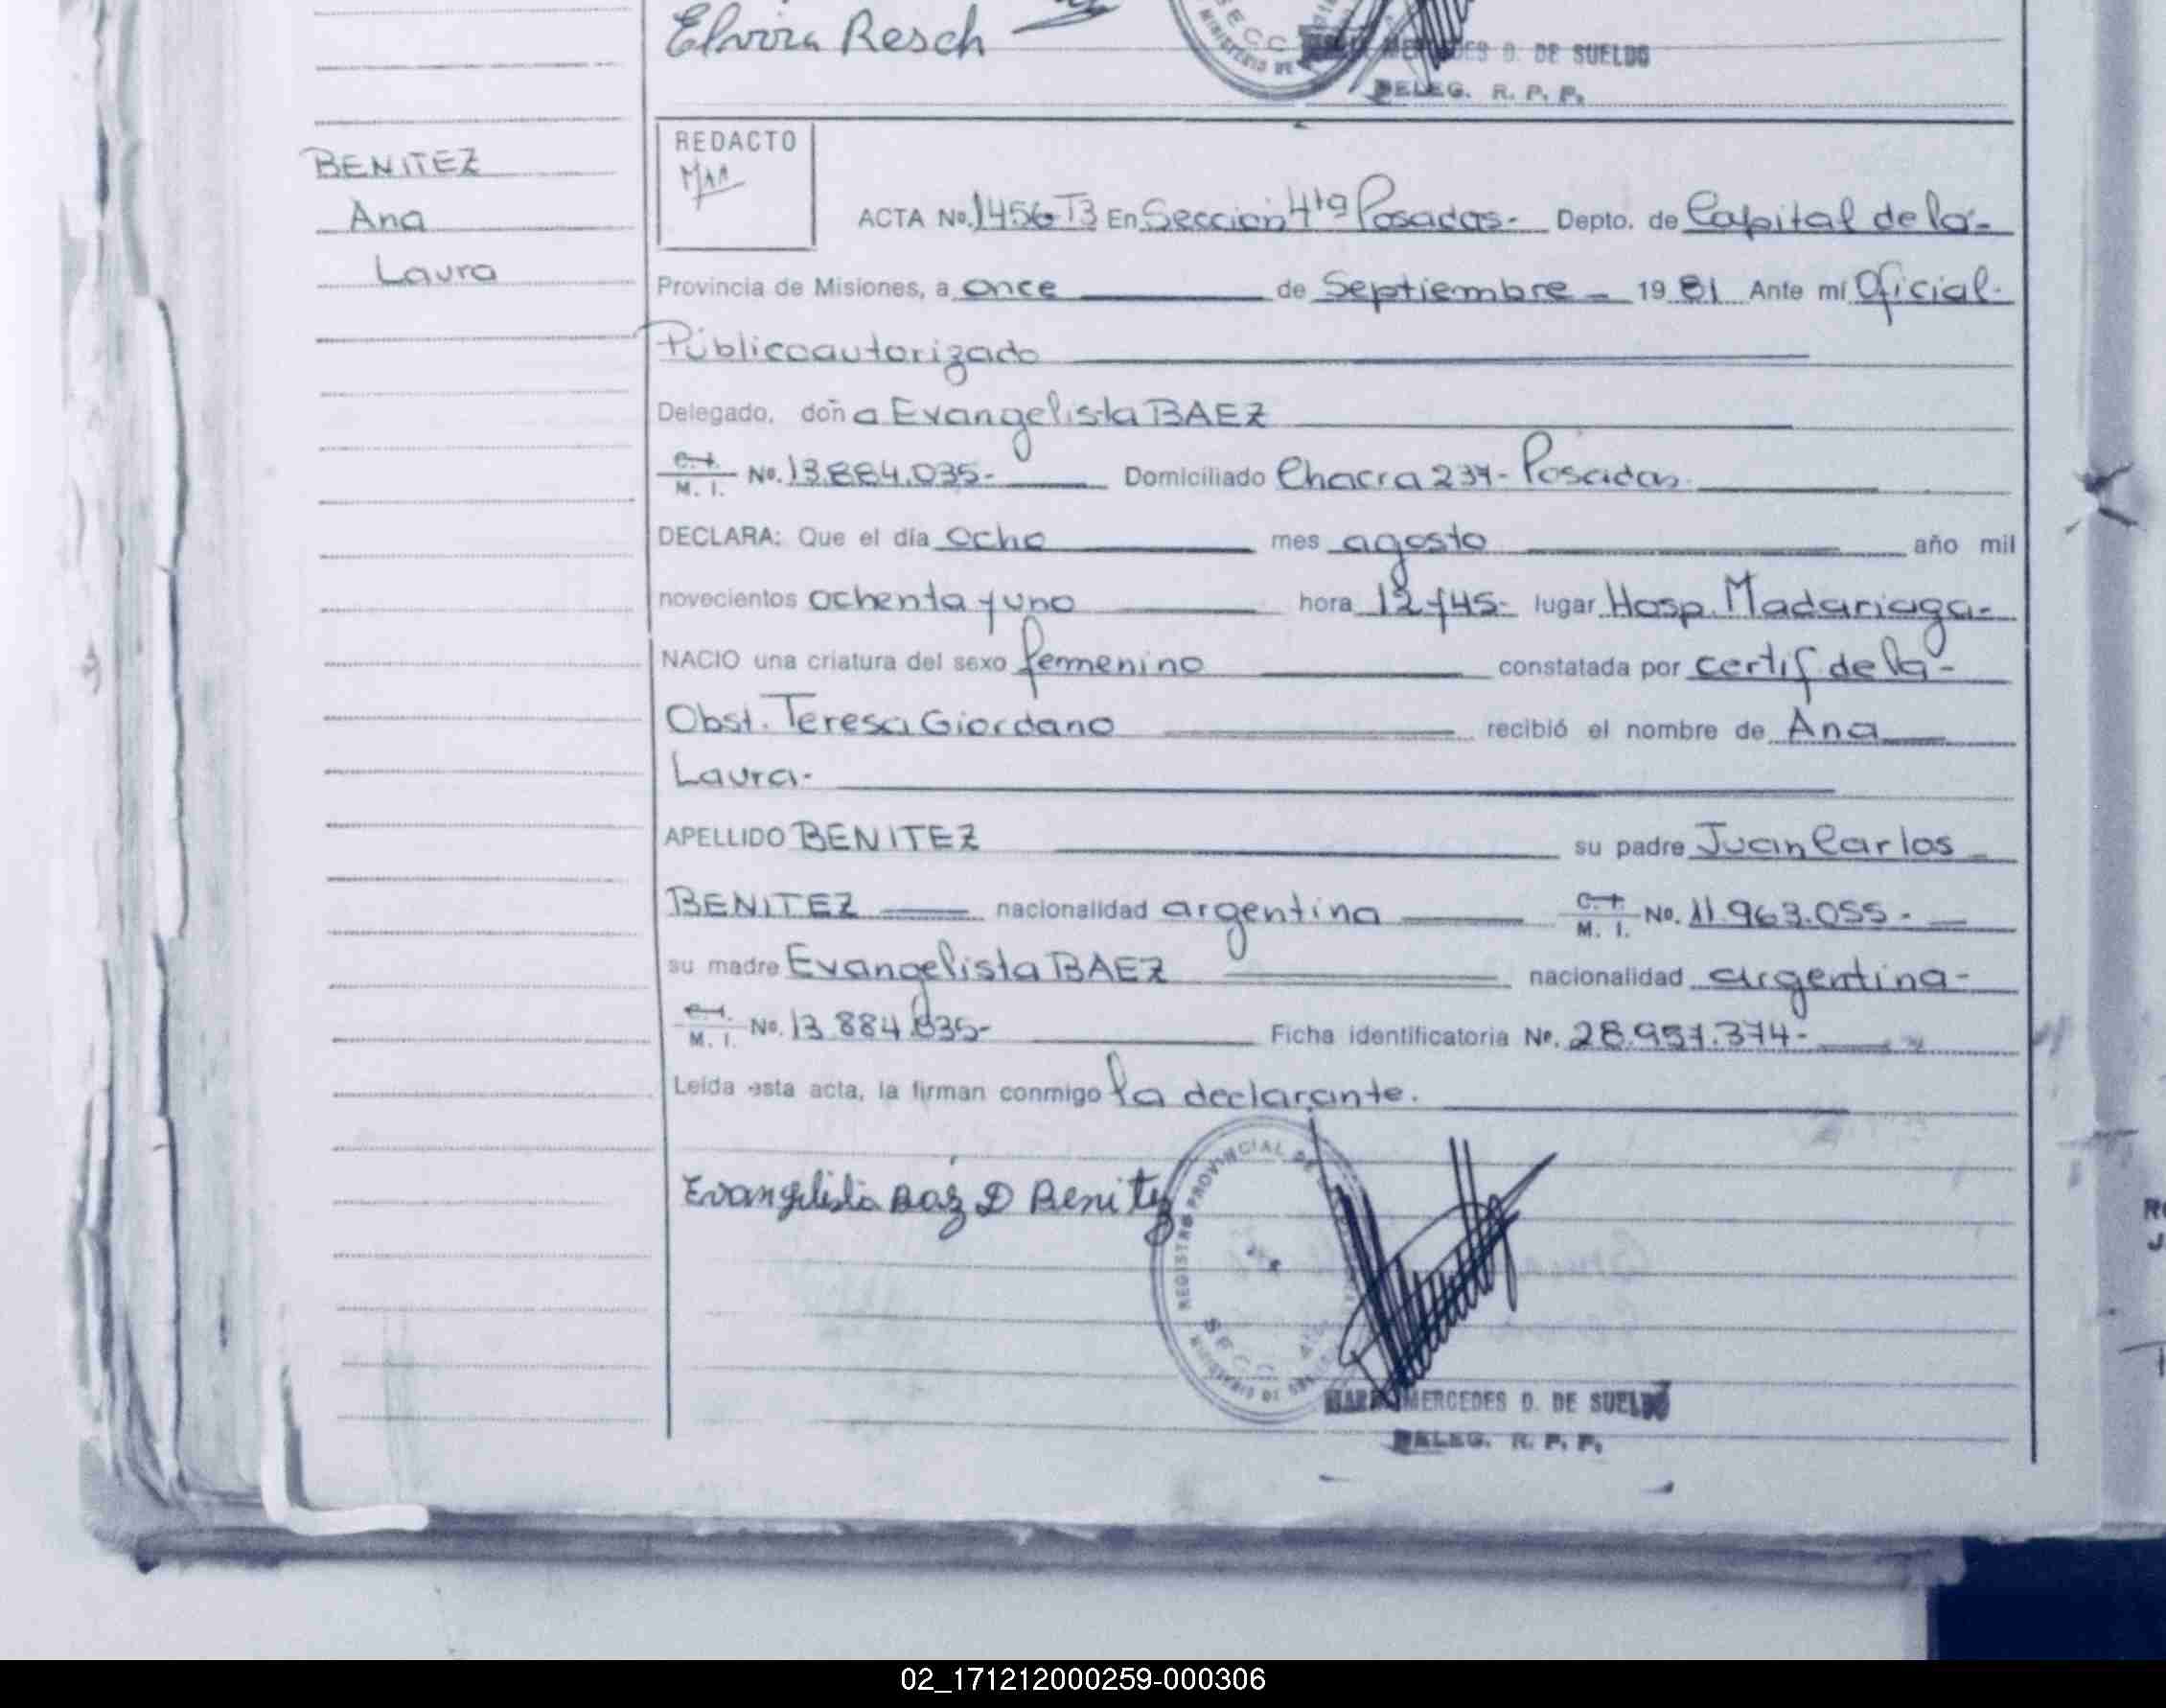 Elvira Resch
SECC
MINISTERIO DE
MERCEDES D. DE SUELDO
DELEG. R. P. P.
BENITEZ
Ana
Laura
REDACTO
ACTA No. 1456 T3 En Sección 4ta Posadas.- Depto. de Capital de la-
Provincia de Misiones, a once de Septiembre - 19 81 Ante mí Oficial-
Público autorizado
Delegado, doña Evangelista BAEZ
C.I. M. I. No. 13.884.035.- Domiciliado Chacra 237- Posadas.
DECLARA: Que el día ocho mes agosto año mil
novecientos ochenta y uno hora 12 y 45- lugar Hosp. Madariaga-
NACIO una criatura del sexo femenino constatada por certif de la-
Obst. Teresa Giordano recibió el nombre de Ana
Laura-
APELLIDO BENITEZ su padre Juan Carlos
BENITEZ nacionalidad argentina C.I. M. I. No. 11.963.055.-
su madre Evangelista BAEZ nacionalidad argentina-
C.I. M. I. No. 13.884.035- Ficha identificatoria No. 28.957.374-
Leída esta acta, la firman conmigo la declarante.
Evangelista Baéz D Benitez
REGISTRO PROVINCIAL DE
SECC. 4ta
MINISTERIO DE
MARIA MERCEDES D. DE SUELDO
DELEG. R. P. P.
02_171212000259-000306